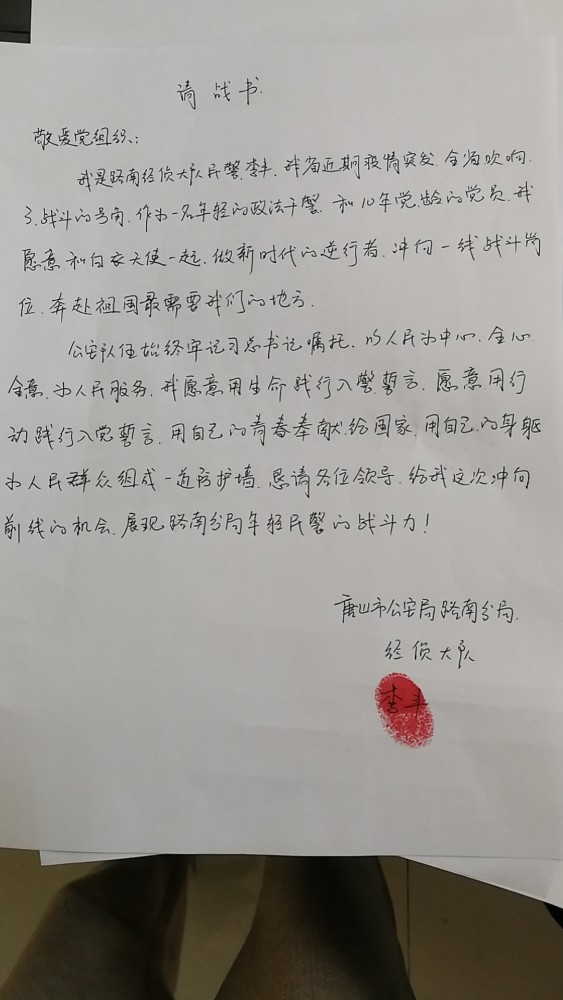 请战书
敬爱党组织:
我是路南经侦大队民警李斗,我省近期疫情突发,全省吹响
了战斗的号角,作为一名年轻的政法干警,和10年党龄的党员,我
愿意和白衣天使一起,做新时代的逆行者,冲向一线战斗岗
位,奔赴祖国最需要我们的地方.
公安队伍始终牢记习总书记嘱托,以人民为中心,全心
全意,为人民服务,我愿意用生命践行入警誓言,愿意用行
动践行入党誓言,用自己的青春奉献给国家,用自己的身躯
为人民群众组成一道防护墙,恳请各位领导,给我这次冲向
前线的机会,展现路南分局年轻民警的战斗力!
唐山市公安局路南分局.
经侦大队
李斗